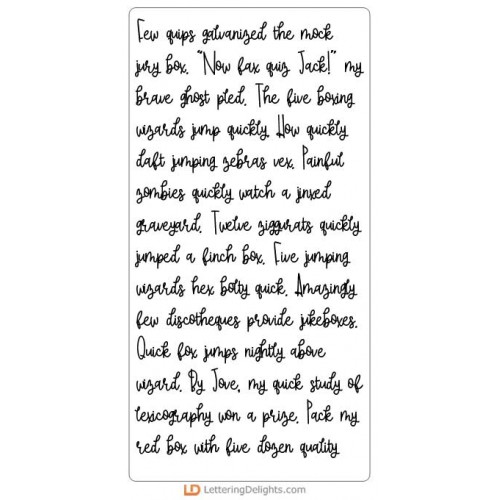 Few quips galvanized the mock
jury box. "Now fax quiz Jack!" my
brave ghost pled. The five boxing
wizards jump quickly. How quickly
daft jumping zebras vex. Painful
zombies quickly watch a jinxed
graveyard. Twelve ziggurats quickly
jumped a finch box. Five jumping
wizards hex bolty quick. Amazingly
few discotheques provide jukeboxes.
Quick fox jumps nightly above
wizard. By Jove, my quick study of
lexicography won a prize. Pack my
red box with five dozen quality
LD LetteringDelights.com